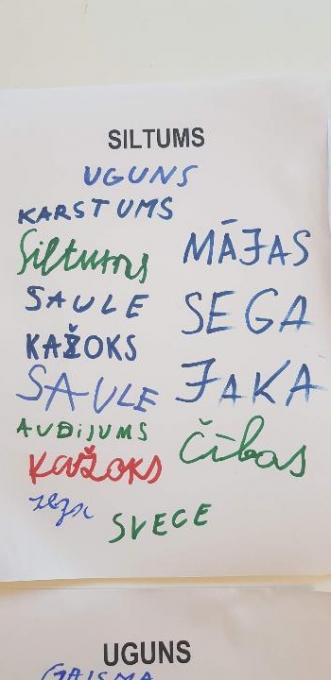 SILTUMS
UGUNS
KARSTUMS
Siltums
SAULE
KAŽOKS
SAULE
AUDIJUMS
KAŽOKS
MĀJAS
SEGA
JAKA
čības
SVECE
UGUNS
GAISMA